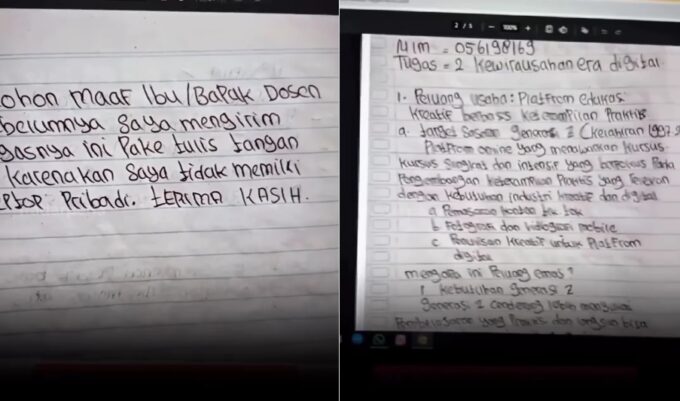 ohon maaf Ibu/Bapak Dosen
belumnya saya mengirim
gasnya ini Pake tulis tangan
karenakan saya tidak memiliki
ptop Pribadi. tERIMA KASIH.
2 / 5
100%
NIM = 056198169
Tugas = 2 Kewirausahan era digital
1. Peluang usaha: Platfrom edukasi
Kreatif berbasis keterampilan Praktis
a. target Sasaran generasi Z (kelahiran 1997-2
Platfrom online yang menawarkan kursus
kursus singkat dan intensif yang berfokus Pada
Pengembangan keterampilan Praktis yang relevan
dengan kebutuhan industri kreatif dan digital
a Pemasaran konten tik tok
b Fotografi dan vidiografi mobile
c Penulisan kreatif untuk Platfrom
digital
mengapa ini Peluang emas?
1 kebutuhan generasi Z
generasi Z cenderung lebih menyukai
Pembelajaran yang Praktis dan langsung bisa